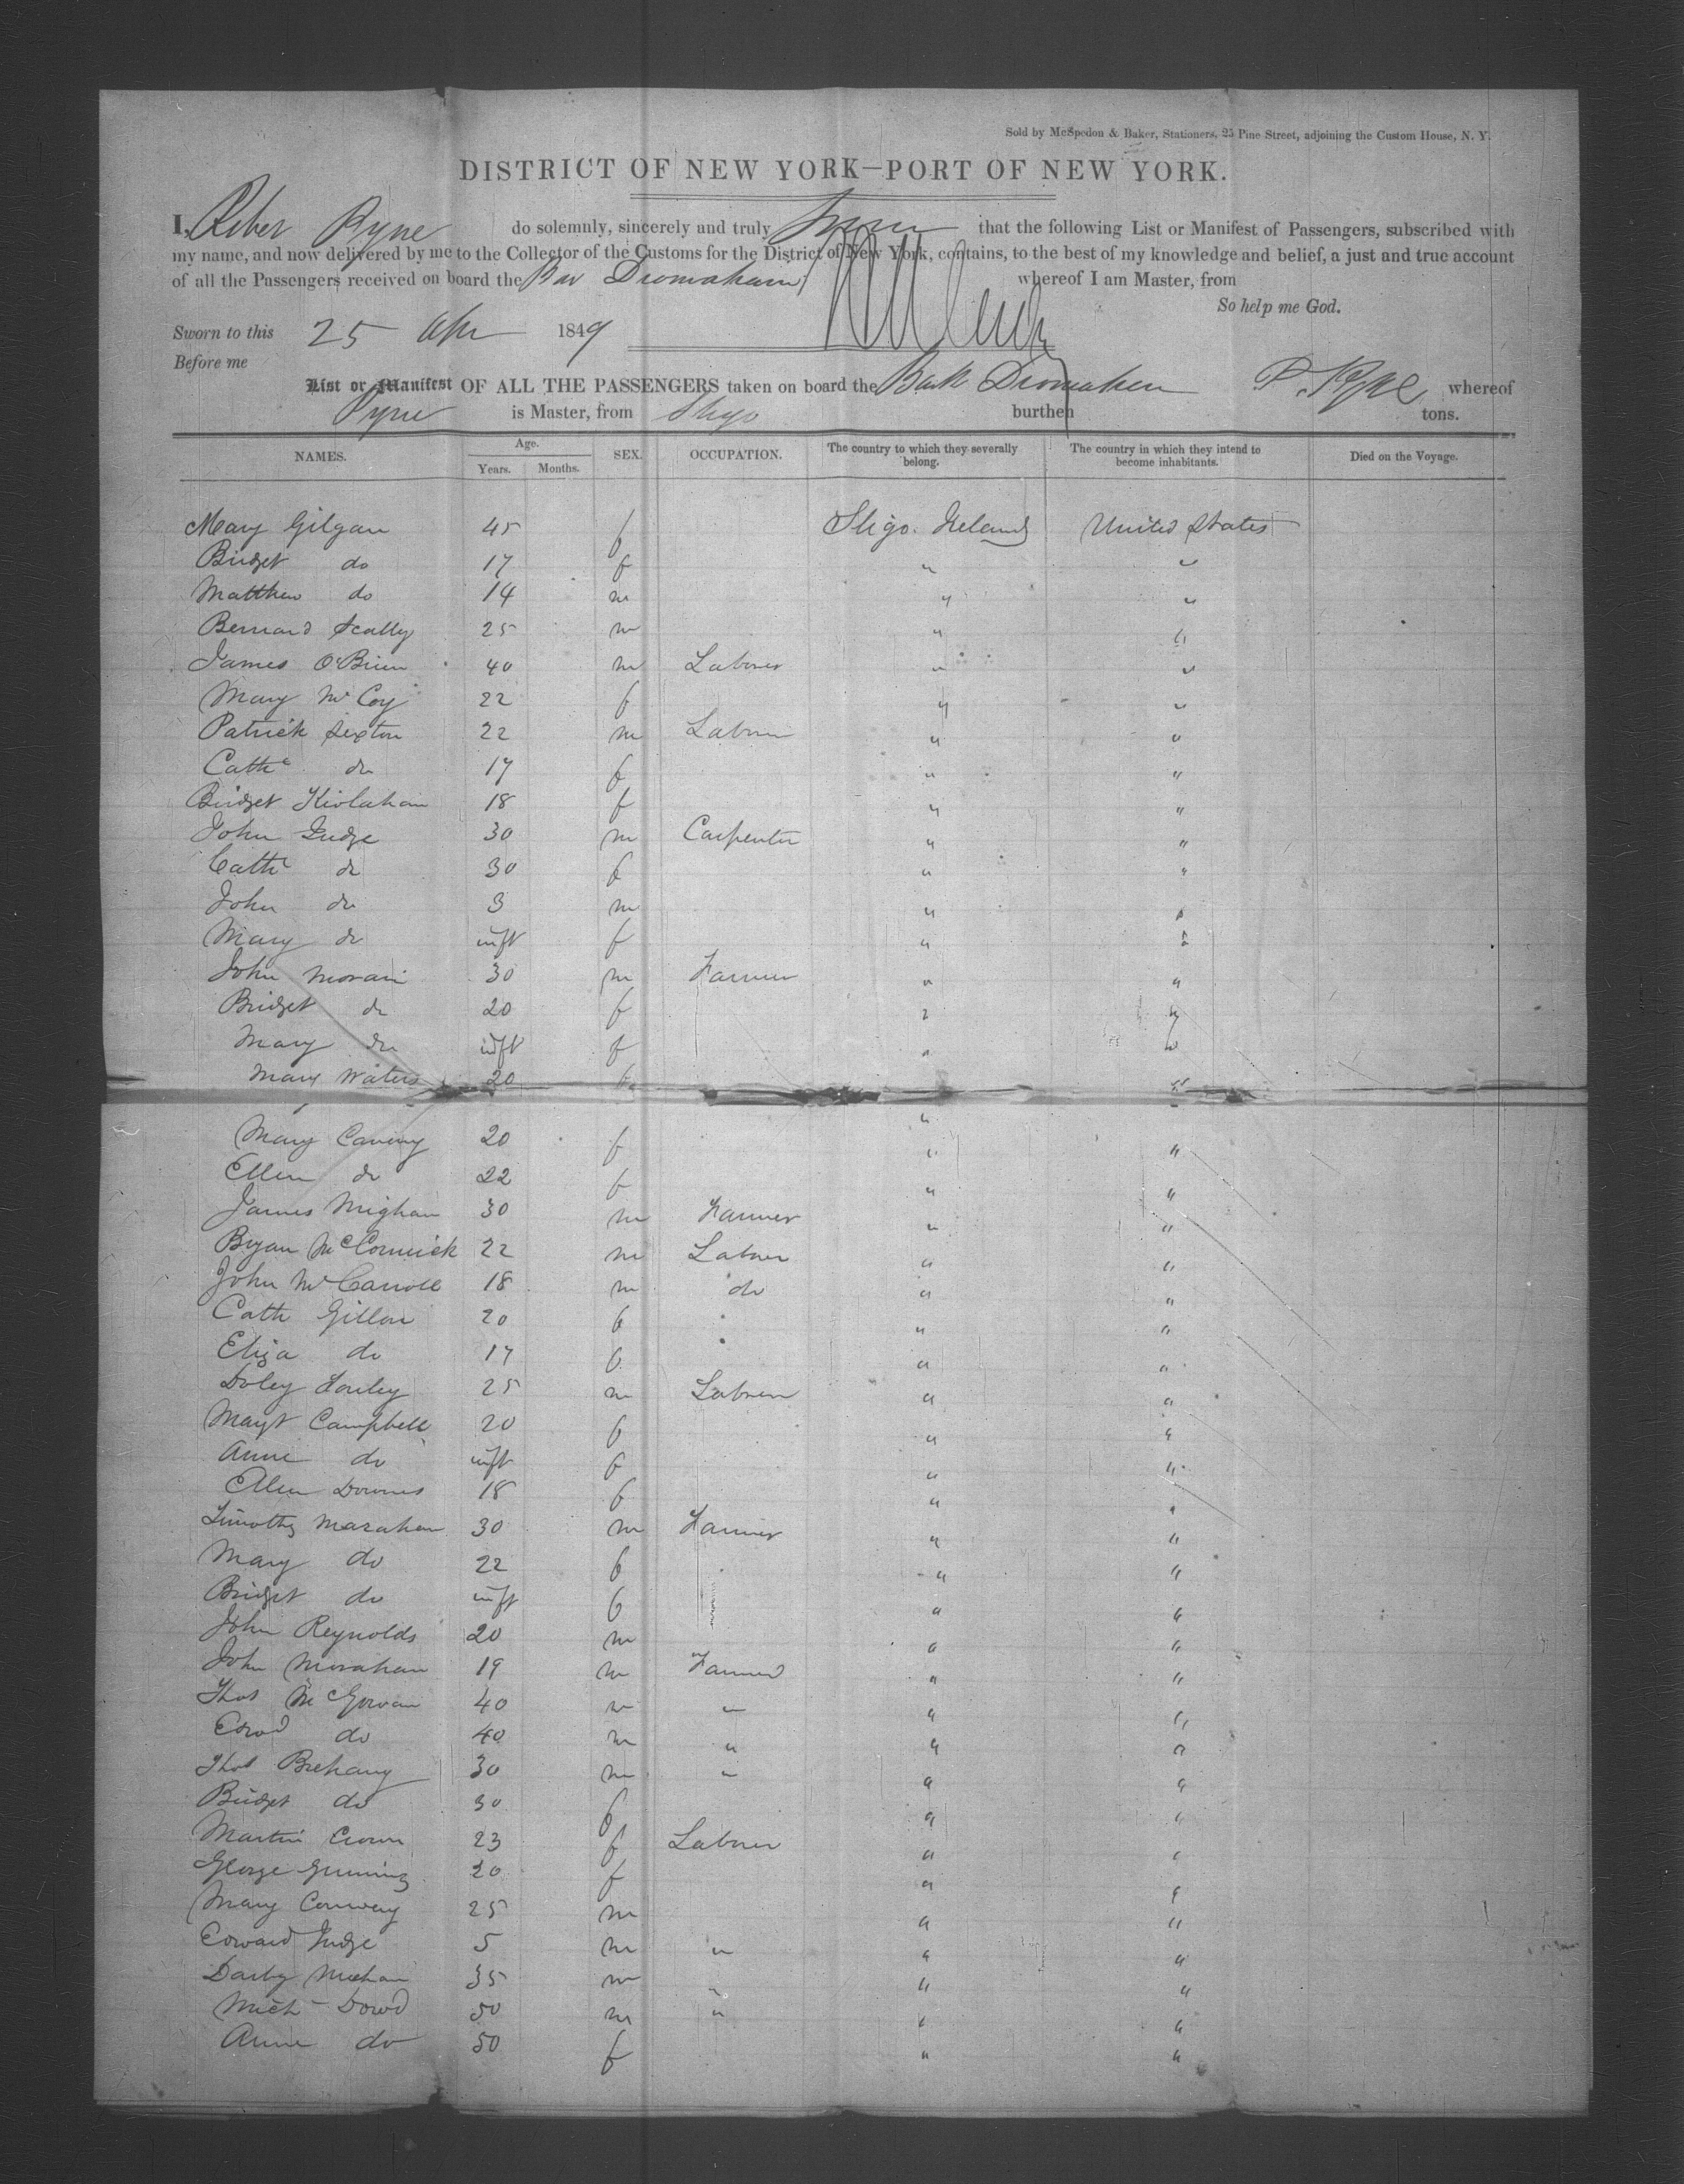 Sold by McSpedon & Baker, Stationers, 25 Pine Street, adjoining the Custom House, N. Y.
DISTRICT OF NEW YORK—PORT OF NEW YORK.
I, Pyne do solemnly, sincerely and truly swear that the following List or Manifest of Passengers, subscribed with
my name, and now delivered by me to the Collector of the Customs for the District of New York, contains, to the best of my knowledge and belief, a just and true account
of all the Passengers received on board the Bar Dromahair whereof I am Master, from
So help me God.
Sworn to this 25 Apr 1849
Before me
List or Manifest OF ALL THE PASSENGERS taken on board the Bark Dromahair P. Pyne whereof
Pyne is Master, from Sligo burthen tons.
NAMES. Age. Years. Months. SEX. OCCUPATION. The country to which they severally belong. The country in which they intend to become inhabitants. Died on the Voyage.
Mary Gilgan 45 f Sligo. Ireland United States
Bridget do 17 f " "
Matthew do 14 m " "
Bernard Scally 25 m " "
James O'Brien 40 m Laborer " "
Mary McCoy 22 f " "
Patrick Sexton 22 m Laborer " "
Cathe do 17 f " "
Bridget Kivlahan 18 f " "
John Judge 30 m Carpenter " "
Cathe do 30 f " "
John do 3 m " "
Mary do inft f " "
John Moran 30 m Farmer " "
Bridget do 20 f " "
Mary do inft f " "
Mary Waters 20 f " "
Mary 20 f " "
Ellen do 22 f " "
James Mighan 30 m Farmer " "
Bryan McCormick 22 m Laborer " "
John McCarroll 18 m do " "
Cath Gillon 20 f " "
Eliza do 17 f " "
25 m Laborer " "
Margt Campbell 20 f " "
Anne do inft f " "
Ellen Downes 18 f " "
Timothy 30 m Farmer " "
Mary do 22 f " "
Bridget do inft f " "
John Reynolds 20 m " "
John Morahan 19 m Farmer " "
Thos McGowan 40 m " " "
Edwd do 40 m " " "
Thos Brehany 30 m " " "
Bridget do 30 f " "
Martin Crown 23 f Laborer " "
George 20 f " "
Mary Conway 25 m " "
Edward Judge 5 m " " "
Darby Meehan 35 m " " "
Mich Dowd 50 m " " "
Anne do 50 f " "